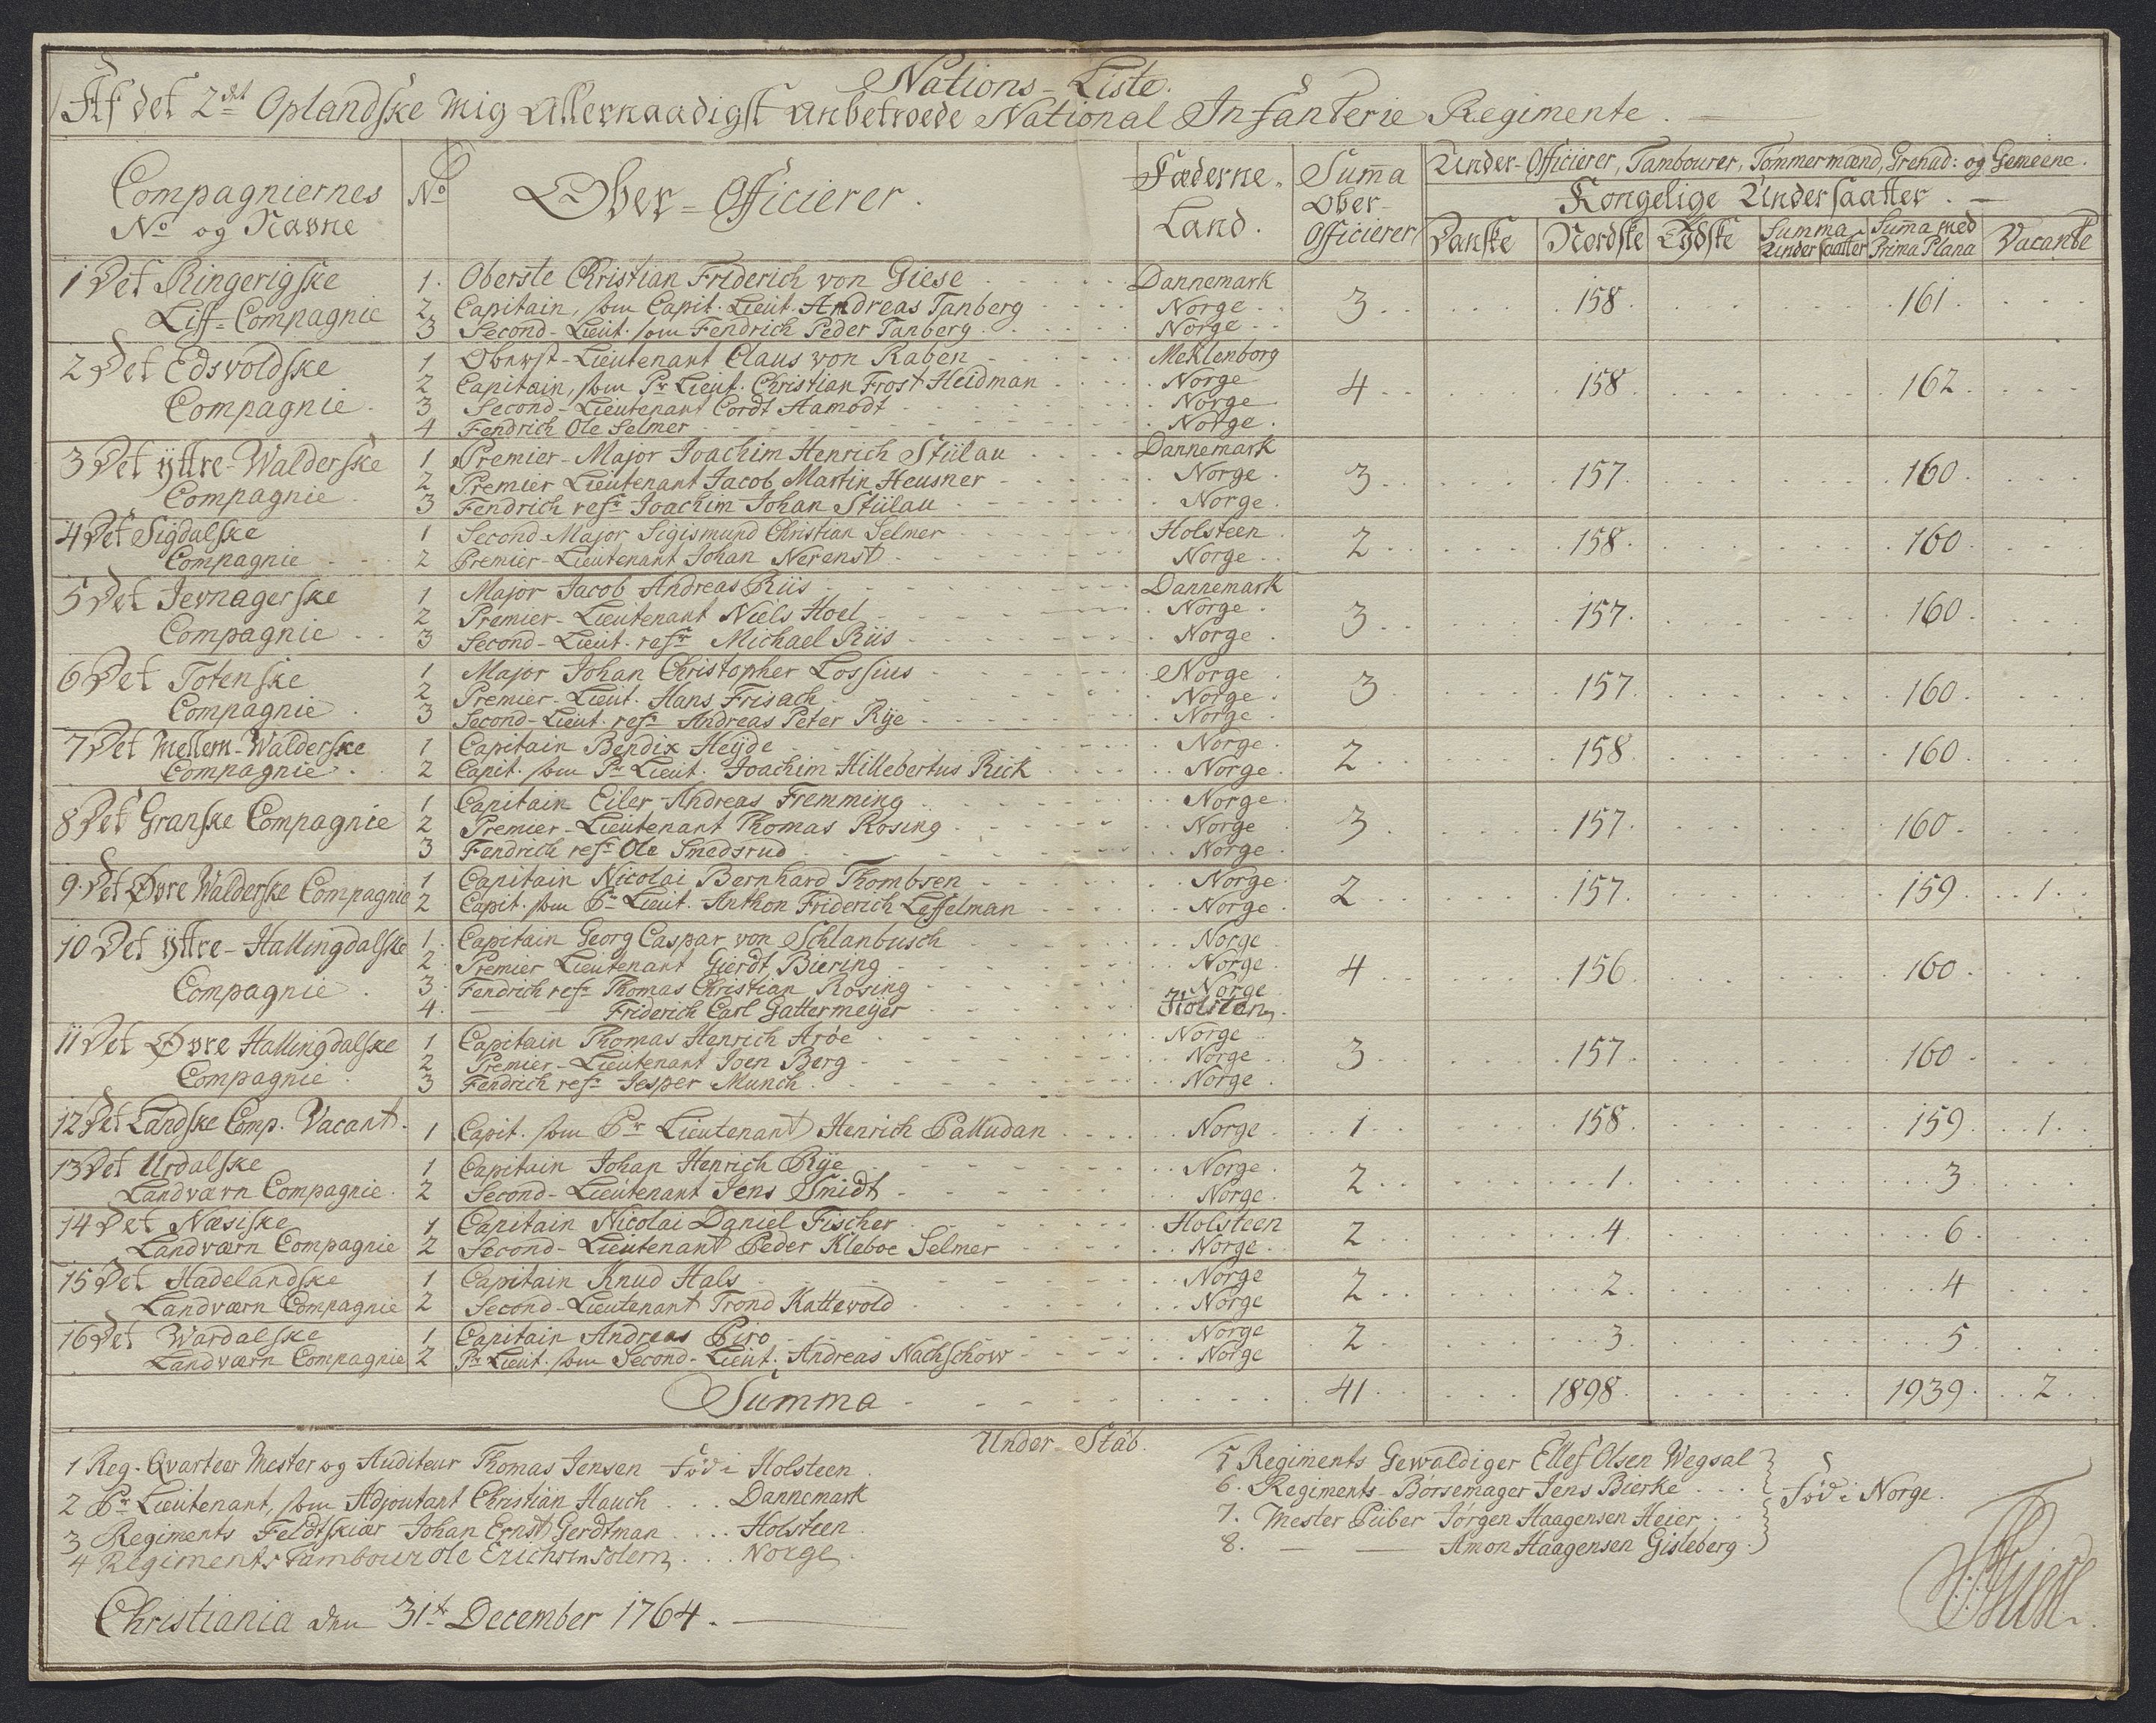 Nations-Liste.
Af det 2det Oplandske Mig Allernaadigst anbetroede National Infanterie Regimente.
Compagniernes No og Navne | No | Ober-Officierer. | Fæderne-Land. | Summa Ober-Officierer | Under-Officierer, Tambourer, Tømmermænd, Grenad: og Gemeene.
Kongelige Undersaatter.
Danske | Nordske | Tydske | Summa Undersaatter | Summa med Prima Plana | Vacante
1 Det Ringerigske | 1. | Oberste Christian Friderich von Giese | Dannemark
Liff-Compagnie | 2. | Capitain, som Capit. Lieut. Andreas Tanberg | Norge | 3 | 158 | 161
3 | Second-Lieut. som Fendrich Peder Tanberg | Norge
2 Det Edsvoldske | 1 | Oberst-Lieutenant Claus von Raben | Meklenborg
2 | Capitain, som Pr Lieut. Christian Frost Heidman | Norge | 4 | 158 | 162
Compagnie | 3 | Second-Lieutenant Cordt Aamodt | Norge
4 | Fendrich Ole Selmer | Norge
3 Det ÿttre-Walderske | 1 | Premier-Major Joachim Henrich Stülau | Dannemark
Compagnie | 2 | Premier Lieutenant Jacob Martin Heusner | Norge | 3 | 157 | 160
3 | Fendrich resr Joachim Johan Stülau | Norge
4 Det Sigdalske | 1 | Second-Major Sigismund Christian Selmer | Holsteen | 2 | 158 | 160
Compagnie | 2 | Premier-Lieutenant Johan Nerenst | Norge
5 Det Jevnagerske | 1 | Major Jacob Andreas Riis | Dannemark
2 | Premier-Lieutenant Niels Hoel | Norge | 3 | 157 | 160
Compagnie | 3 | Second-Lieut. resr Michael Riis | Norge
6 Det Totenske | 1 | Major Johan Christopher Lossius | Norge
Compagnie | 2 | Premier-Lieut. Hans Frisach | Norge | 3 | 157 | 160
3 | Second-Lieut. resr Andreas Peter Rÿe | Norge
7 Det Mellem-Walderske | 1 | Capitain Bendix Heÿde | Norge | 2 | 158 | 160
Compagnie | 2 | Capit. som Pr Lieut. Joachim Hillebertus Rick | Norge
1 | Capitain Eiler Andreas Fremming | Norge
8 Det Granske Compagnie | 2 | Premier-Lieutenant Thomas Rosing | Norge | 3 | 157 | 160
3 | Fendrich resr Ole Smedsrud | Norge
9. Det Øvre Walderske Compagnie | 1 | Capitain Nicolai Bernhard Thombsen | Norge | 2 | 157 | 159 | 1
2 | Capit. som Pr Lieut. Anthon Friderich Leffelman | Norge
10 Det ÿttre-Hallingdalske | 1. | Capitain Georg Caspar von Schlanbusch | Norge
2. | Premier Lieutenant Gierdt Biering | Norge | 4 | 156 | 160
Compagnie | 3. | Fendrich resr Thomas Christian Rosing | Norge
4. | Friderich Carl Gattermeÿer | Holsteen
11 Det Øvre Hallingdalske | 1 | Capitain Thomas Henrich Arøe | Norge
2 | Premier-Lieutenant Joen Berg | Norge | 3 | 157 | 160
Compagnie | 3 | Fendrich resr Jesper Munch | Norge
12 Det Landske Comp. Vacant. | 1 | Capit. som Pr Lieutenant Henrich Palludan | Norge | 1 | 158 | 159 | 1
13 Det Urdalske | 1 | Capitain Johan Henrich Rÿe | Norge | 2 | 1 | 3
Landværn Compagnie. | 2 | Second-Lieutenant Jens Smidt | Norge
14 Det Næsiske | 1 | Capitain Nicolai Daniel Fischer | Holsteen | 2 | 4 | 6
Landværn Compagnie | 2 | Second-Lieutenant Peder Kleboe Selmer | Norge
15 Det Hadelandske | 1 | Capitain Knud Hals | Norge | 2 | 2 | 4
Landværn Compagnie | 2 | Second-Lieutenant Trond Kattevold | Norge
16 Det Wardalske | 1 | Capitain Andreas Piro | Norge | 2 | 3 | 5
Landværn Compagnie | 2 | Pr Lieut. som Second-Lieut. Andreas Nachschow | Norge
Summa | 41 | 1898 | 1939 | 2
Under-Stab.
1 Reg. Qvarteer Mester og Auditeur Thomas Jensen Fød i Holsteen
2 Pr Lieutenant, som Adjoutant Christian Hauch Dannemark
3 Regiments Feldtskiær Johan Ernst Gerdtman Holsteen
4 Regiments Tambour Ole Erichsen Solem Norge
5 Regiments Gewaldiger Ellef Olsen Wegsal
6. Regiments-Børsemager Jens Bierke Fød i Norge.
7. Mester Piiber Jørgen Haagensen Heier
8. Amon Haagensen Gisleberg
Christiania den 31t December 1764.